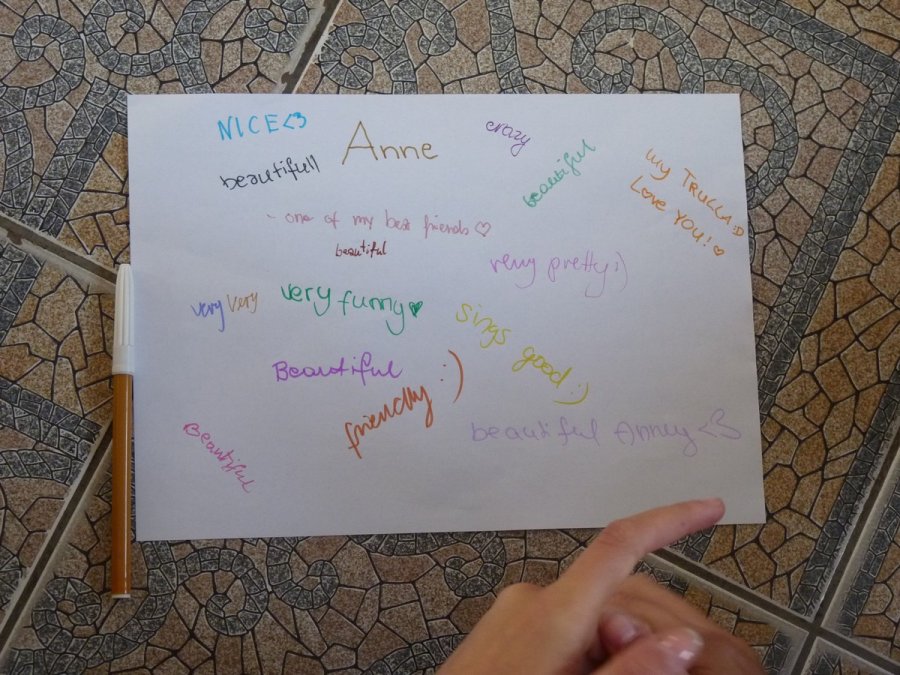 NICE<3
Anne
crazy
beautifull
beautiful
my TRULLA :D
Love YOU! ♡
- one of my best friends ♡
beautiful
very pretty :)
very very
very funny ♥
sings good :)
Beautiful
friendly :)
beautiful Anney <3
Beautiful